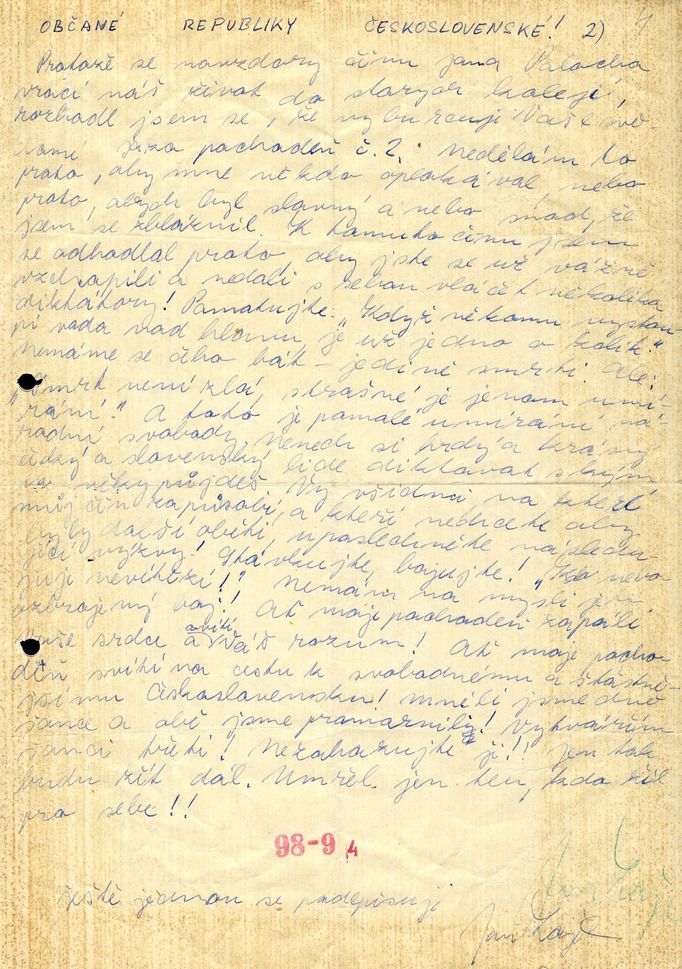 OBČANÉ REPUBLIKY ČESKOSLOVENSKÉ! 2)
Protože se navzdory činu Jana Palacha
vrací náš život do starých kolejí,
rozhodl jsem se, že vyburcuji Vaše svě-
domí jako pochodeň č. 2. Nedělám to
proto, aby mne někdo oplakával, nebo
proto, abych byl slavný a nebo snad, že
jsem se zbláznil. K tomuto činu jsem
se odhodlal proto, aby jste se už vážně
vzchopili a nedali s sebou vláčet několika
diktátory! Pamatujte: „Když někomu vystou-
pí voda nad hlavu, je už jedno o kolik."
Nemáme se čeho bát – jedině smrti. Ale:
„Smrt není zlá, strašné je jenom umí-
rání." A toto je pomalé umírání ná-
rodní svobody. Nenech si hrdý a krásný
český a slovenský lide diktovat s kým
na věky půjdeš! Vy všichni na které
můj čin zapůsobí, a kteří nechcete aby
byly další oběti, uposlechněte následu-
jící výzvy! Stávkujte, bojujte! „Kdo nebo-
juje nevítězí!" Nemám na mysli jen
ozbrojený boj! Ať moje pochodeň zapálí
Vaše srdce a osvítí Váš rozum! Ať moje pocho-
deň svítí na cestu k svobodnému a šťastně-
jšímu Československu! Mněli jsme dvě
šance a obě jsme promarnili! Vytvářím
šanci třetí! Nezahazujte ji!! Jen tak
budu žít dál. Umřel jen ten, kdo žil
pro sebe!!
98-9 4
Ještě jednou se podepisuji
Jan Zajíc
Jan Zajíc